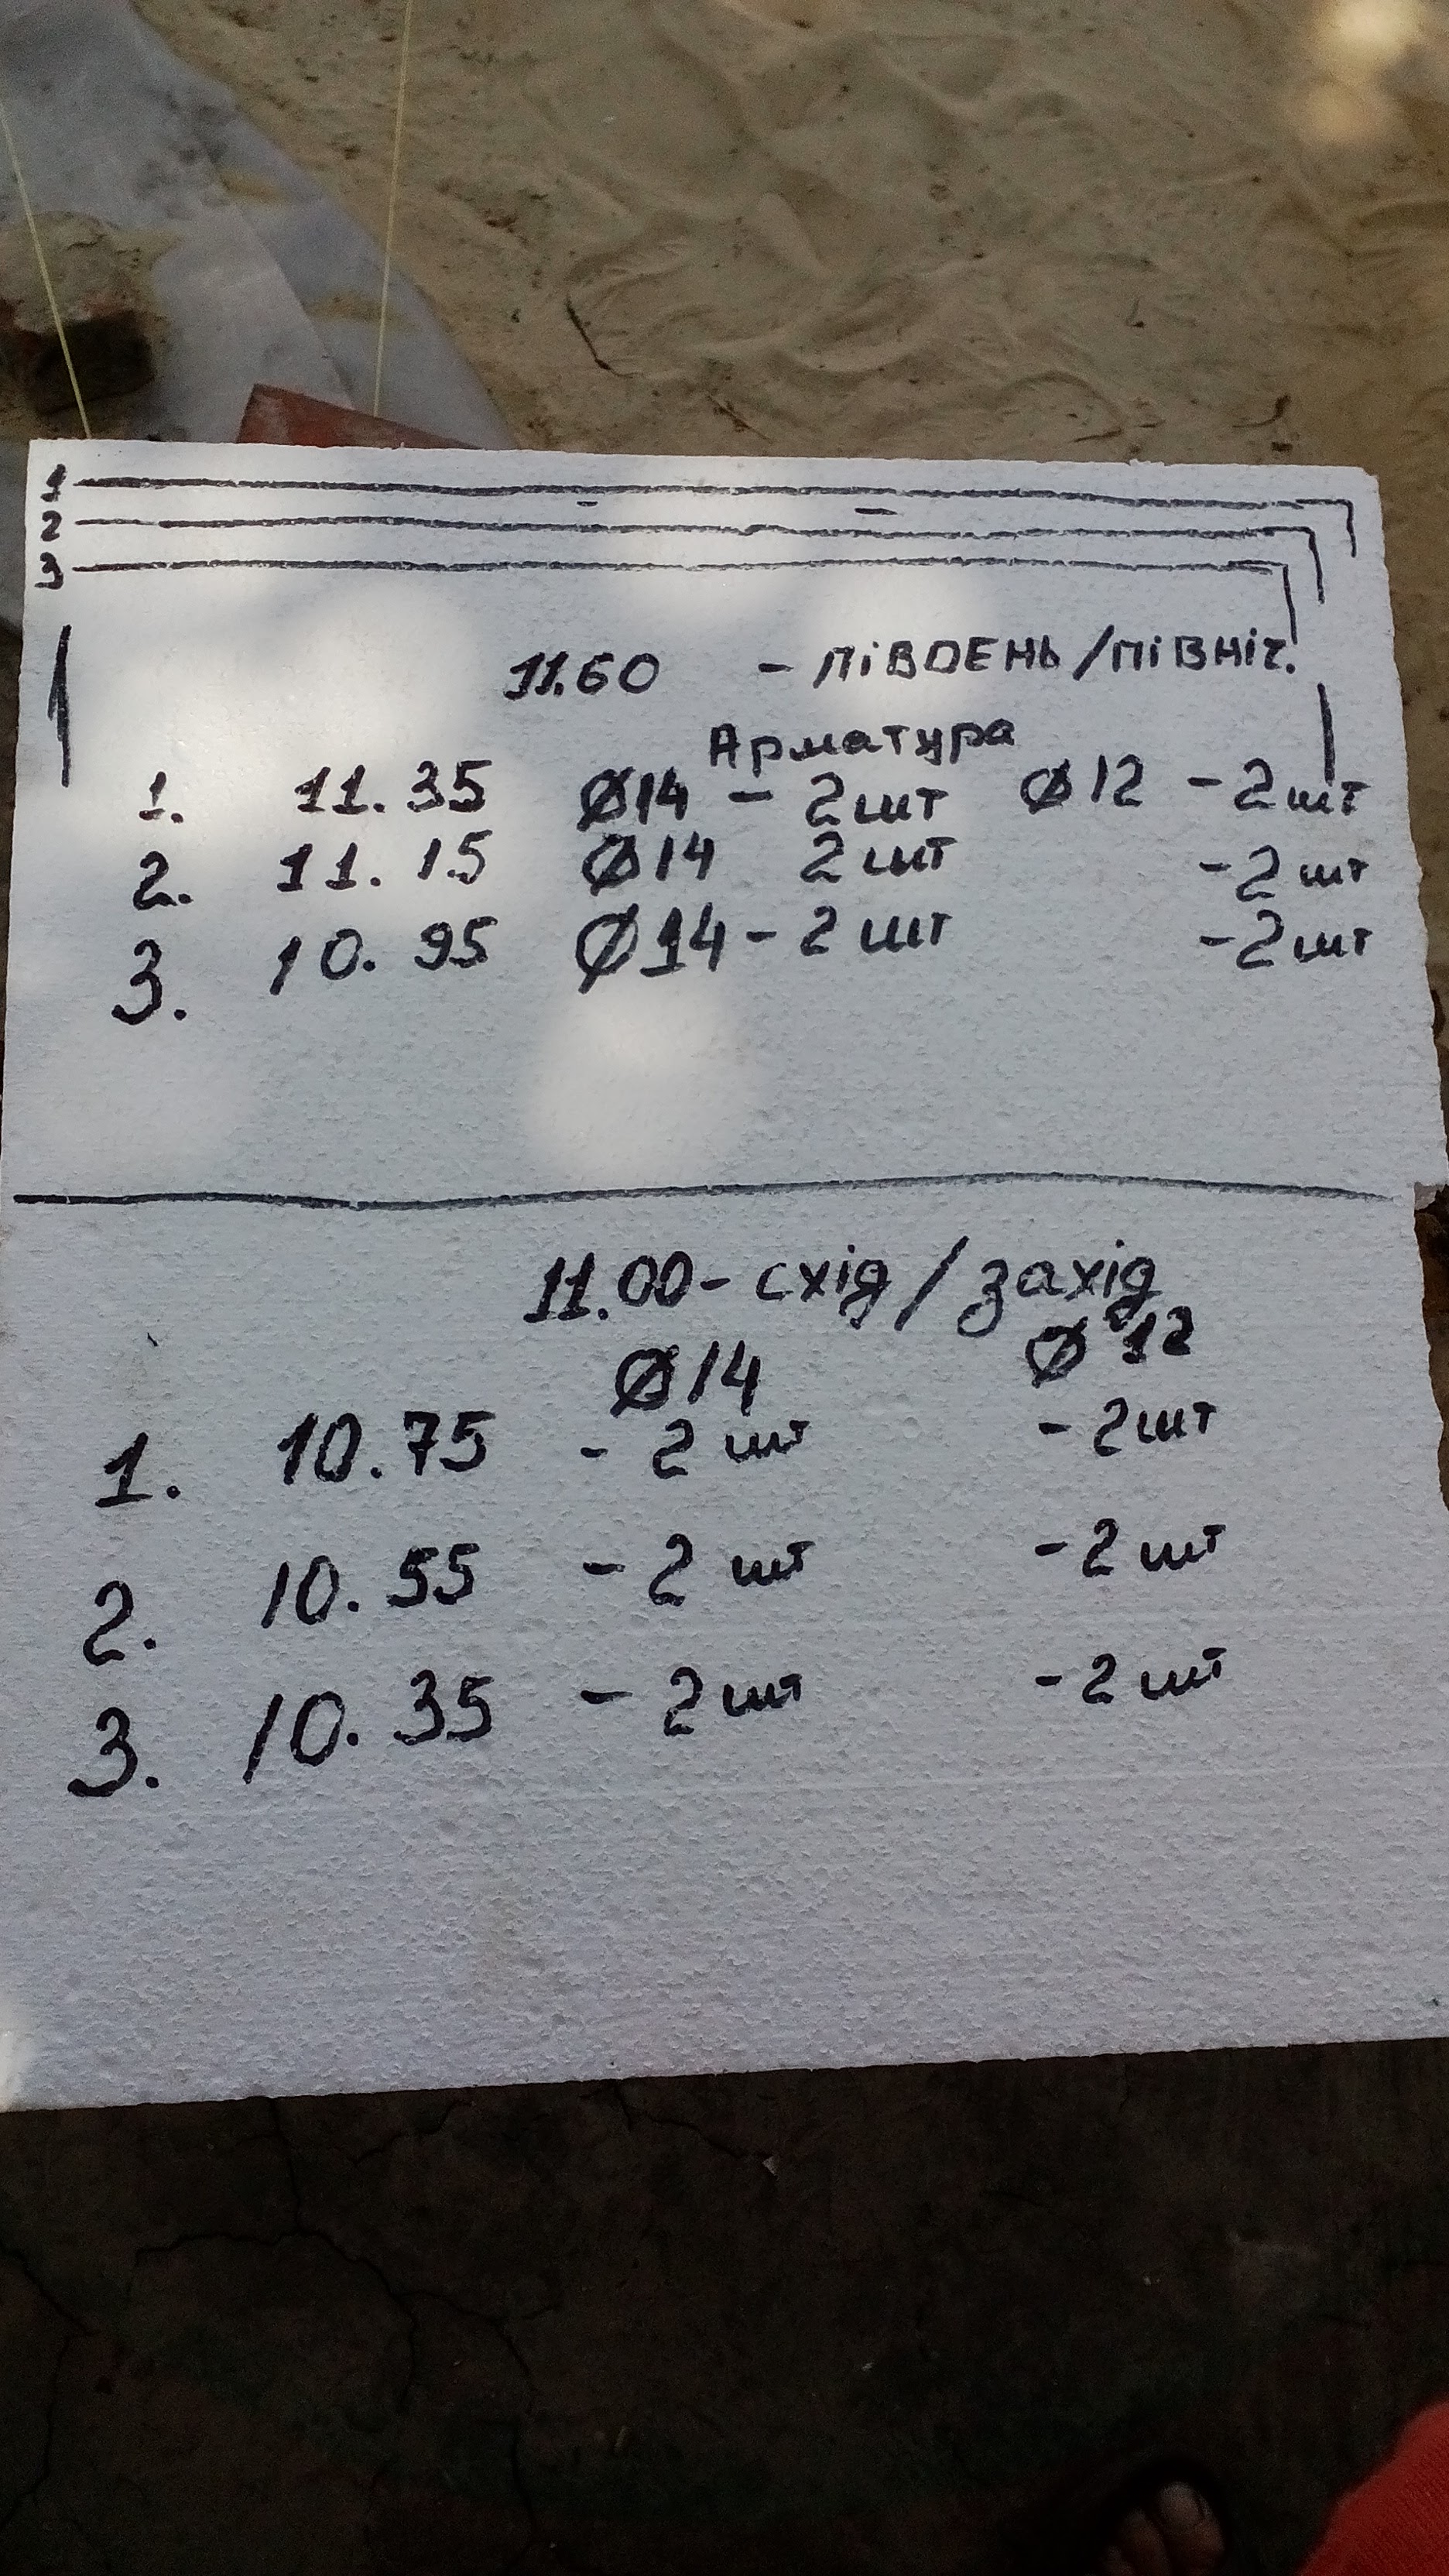 1
2
3
11.60 - ПіВДЕНЬ/ПіВНіч.
Арматура
1. 11.35 Ø14 - 2шт Ø12 - 2шт
2. 11.15 Ø14 2шт - 2шт
3. 10.95 Ø14 - 2шт - 2шт
11.00 - схід / захід
Ø14 Ø12
1. 10.75 - 2 шт - 2шт
2. 10.55 - 2 шт - 2 шт
3. 10.35 - 2 шт - 2 шт